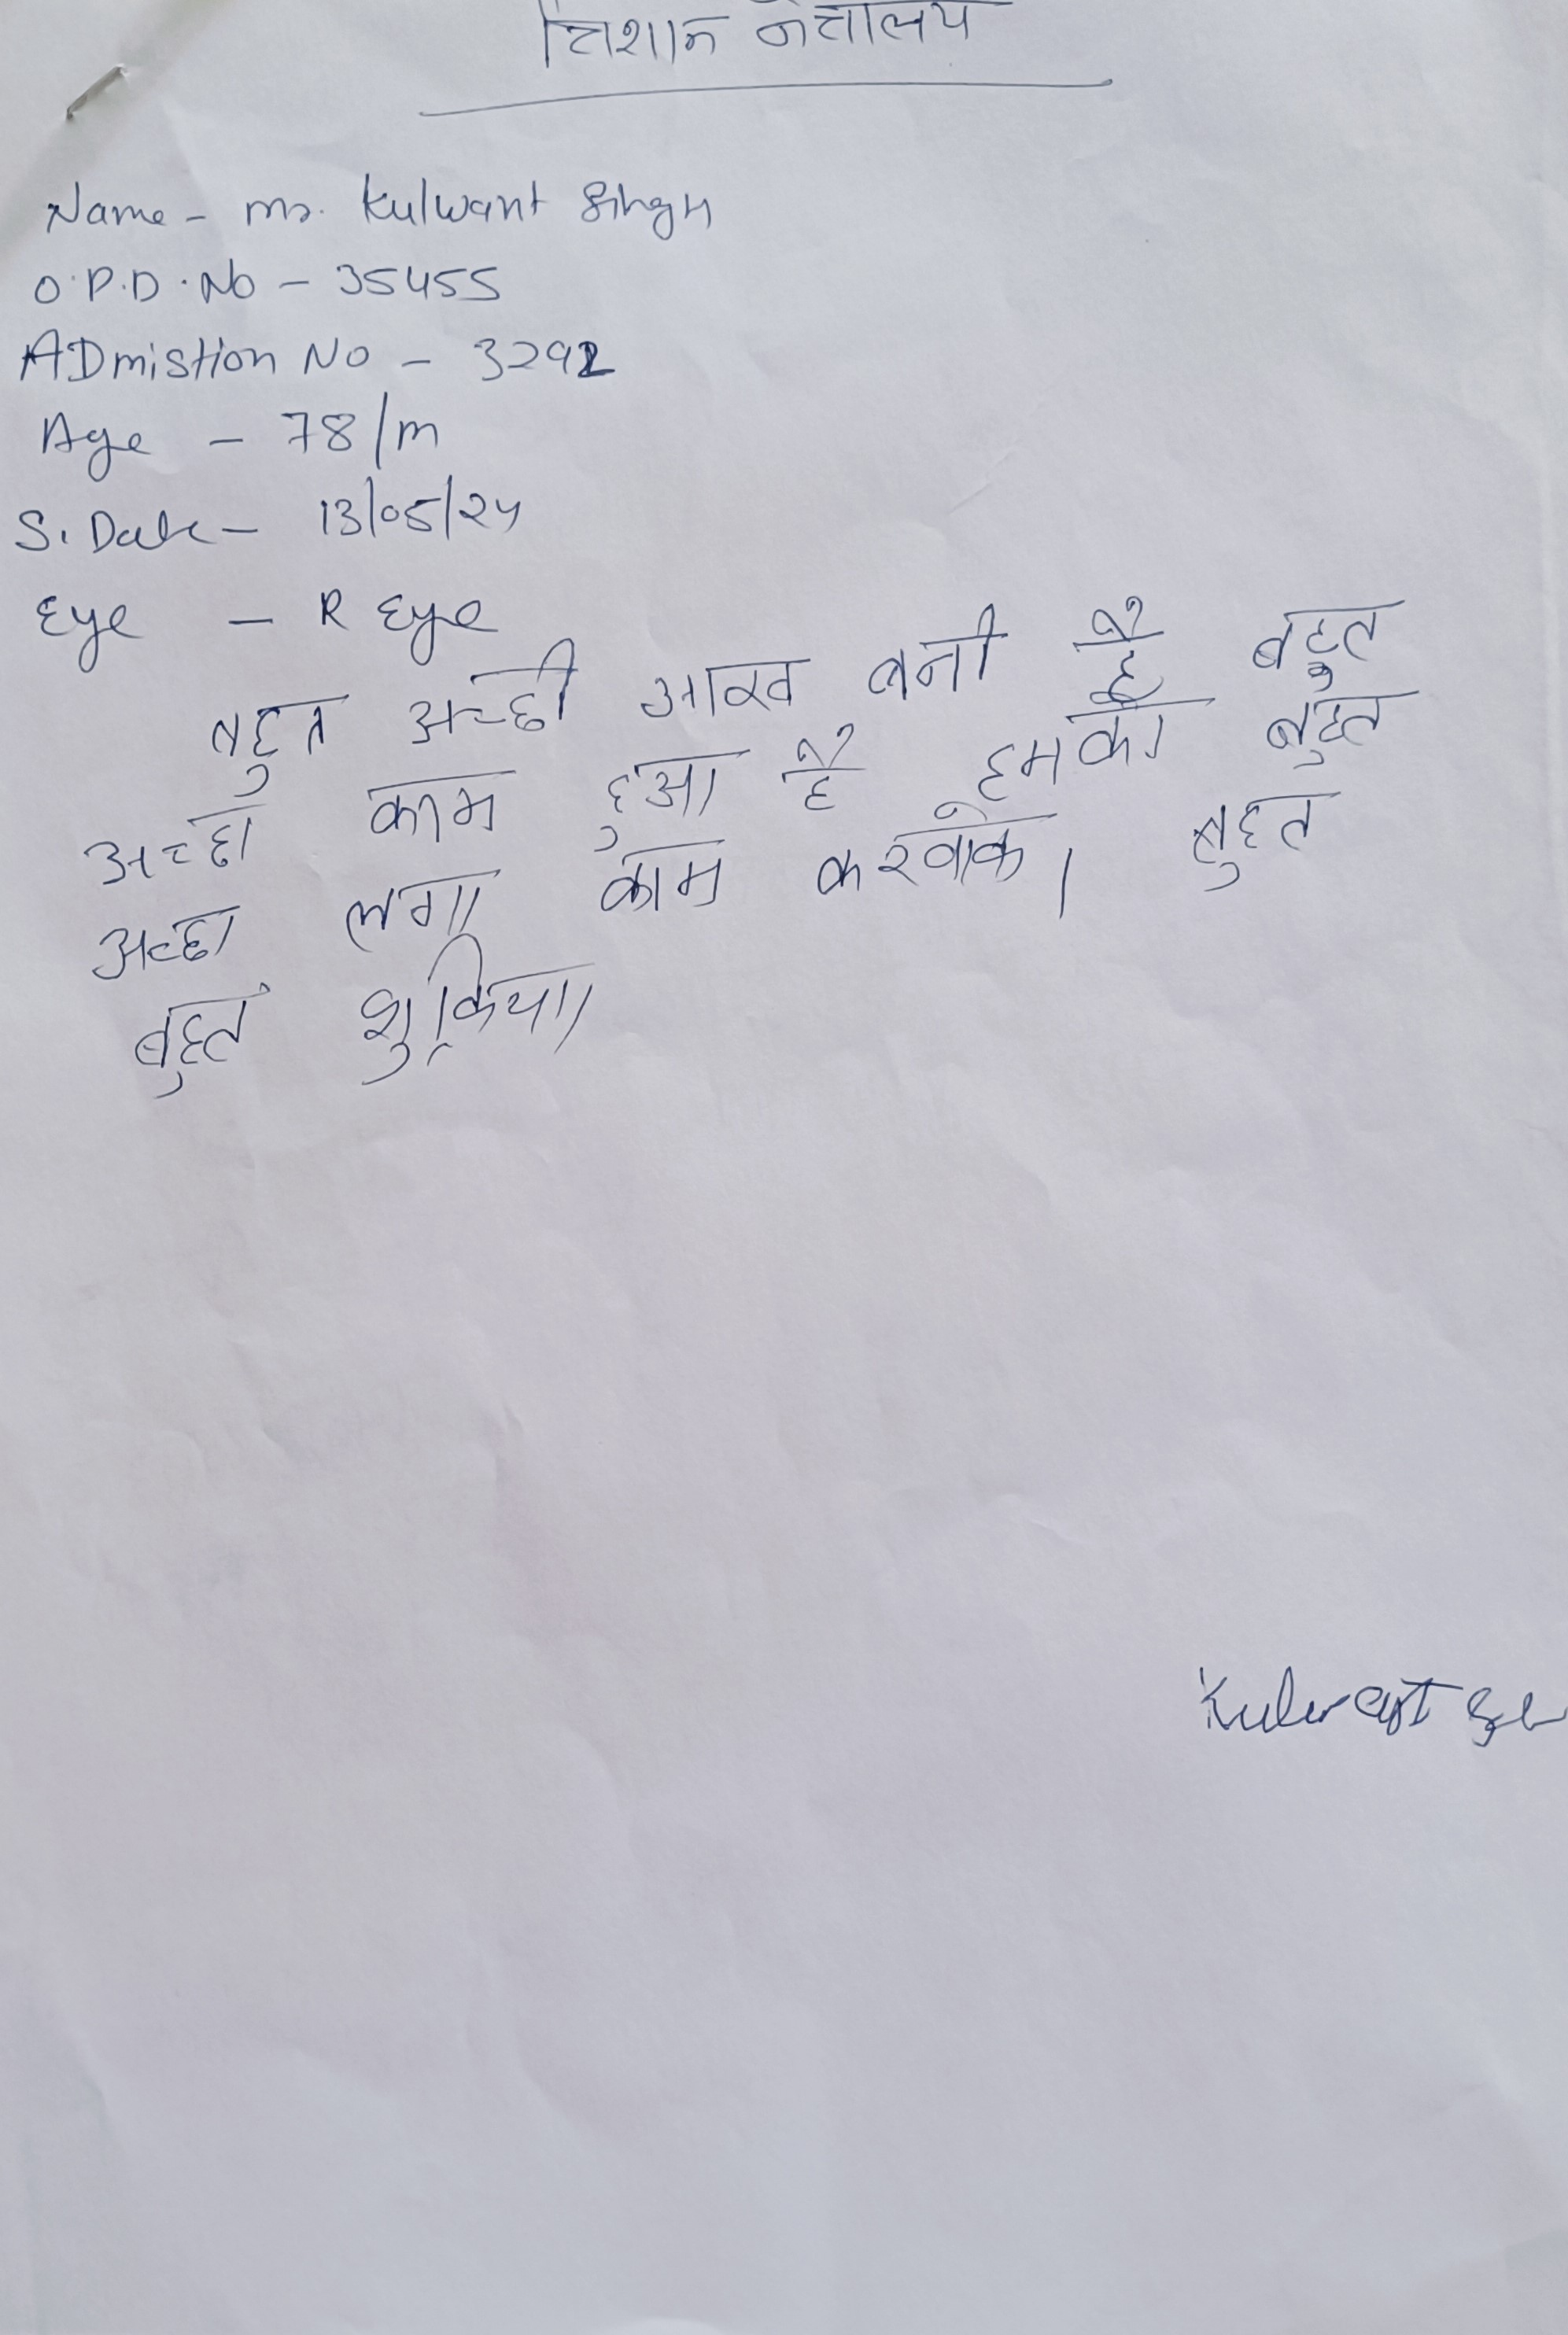 नेत्रालय
Name - mr. Kulwant Singh
O.P.D.No - 35455
ADmistion No - 3292
Age - 78/m
S. Date - 13/05/24
Eye - R Eye
बहुत अच्छी आख बनी है बहुत
अच्छा काम हुआ है हमको बुहत
अच्छा लगा काम करवाके। बुहत
बुहत शुक्रिया।
Kulwant